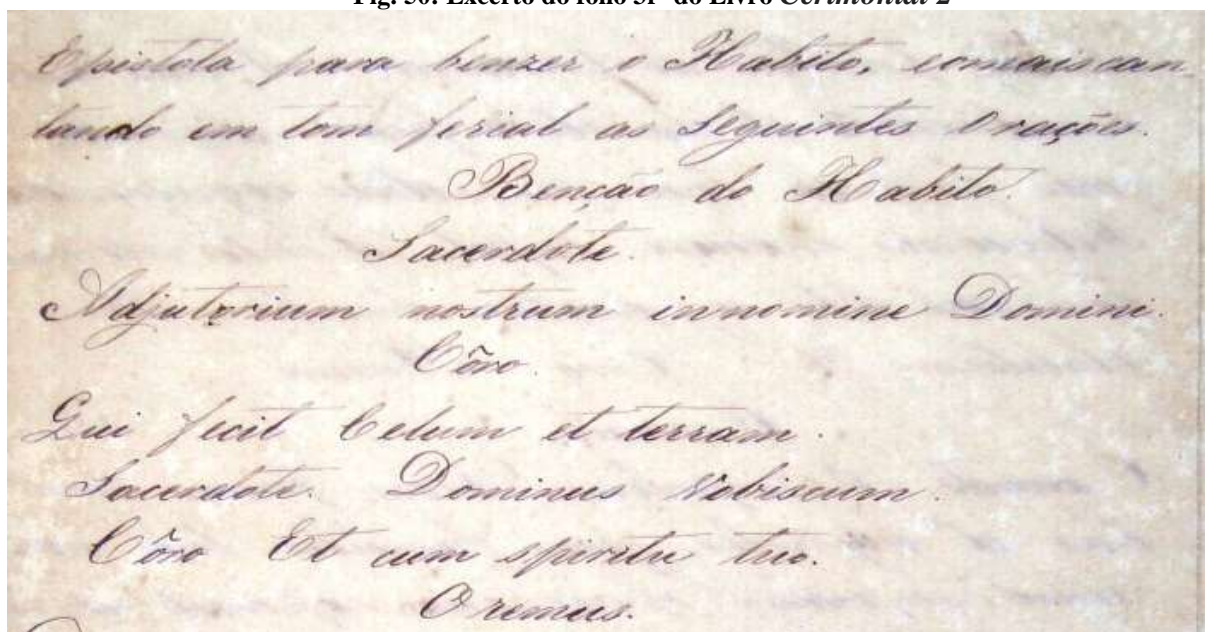 Fig. 50: Excerto do fólio 31 do Livro Cerimonial 2
Epistola para benzer o Habito, comais can
tando em tom ferial as Seguintes Orações.
Benção do Habito.
Sacerdote.
Adjutorium nostrum innomine Domini.
Côro.
Qui fecit Celum et terram.
Sacerdote. Dominus Vobiscum.
Côro Et cum spiritu tuo.
Oremus.